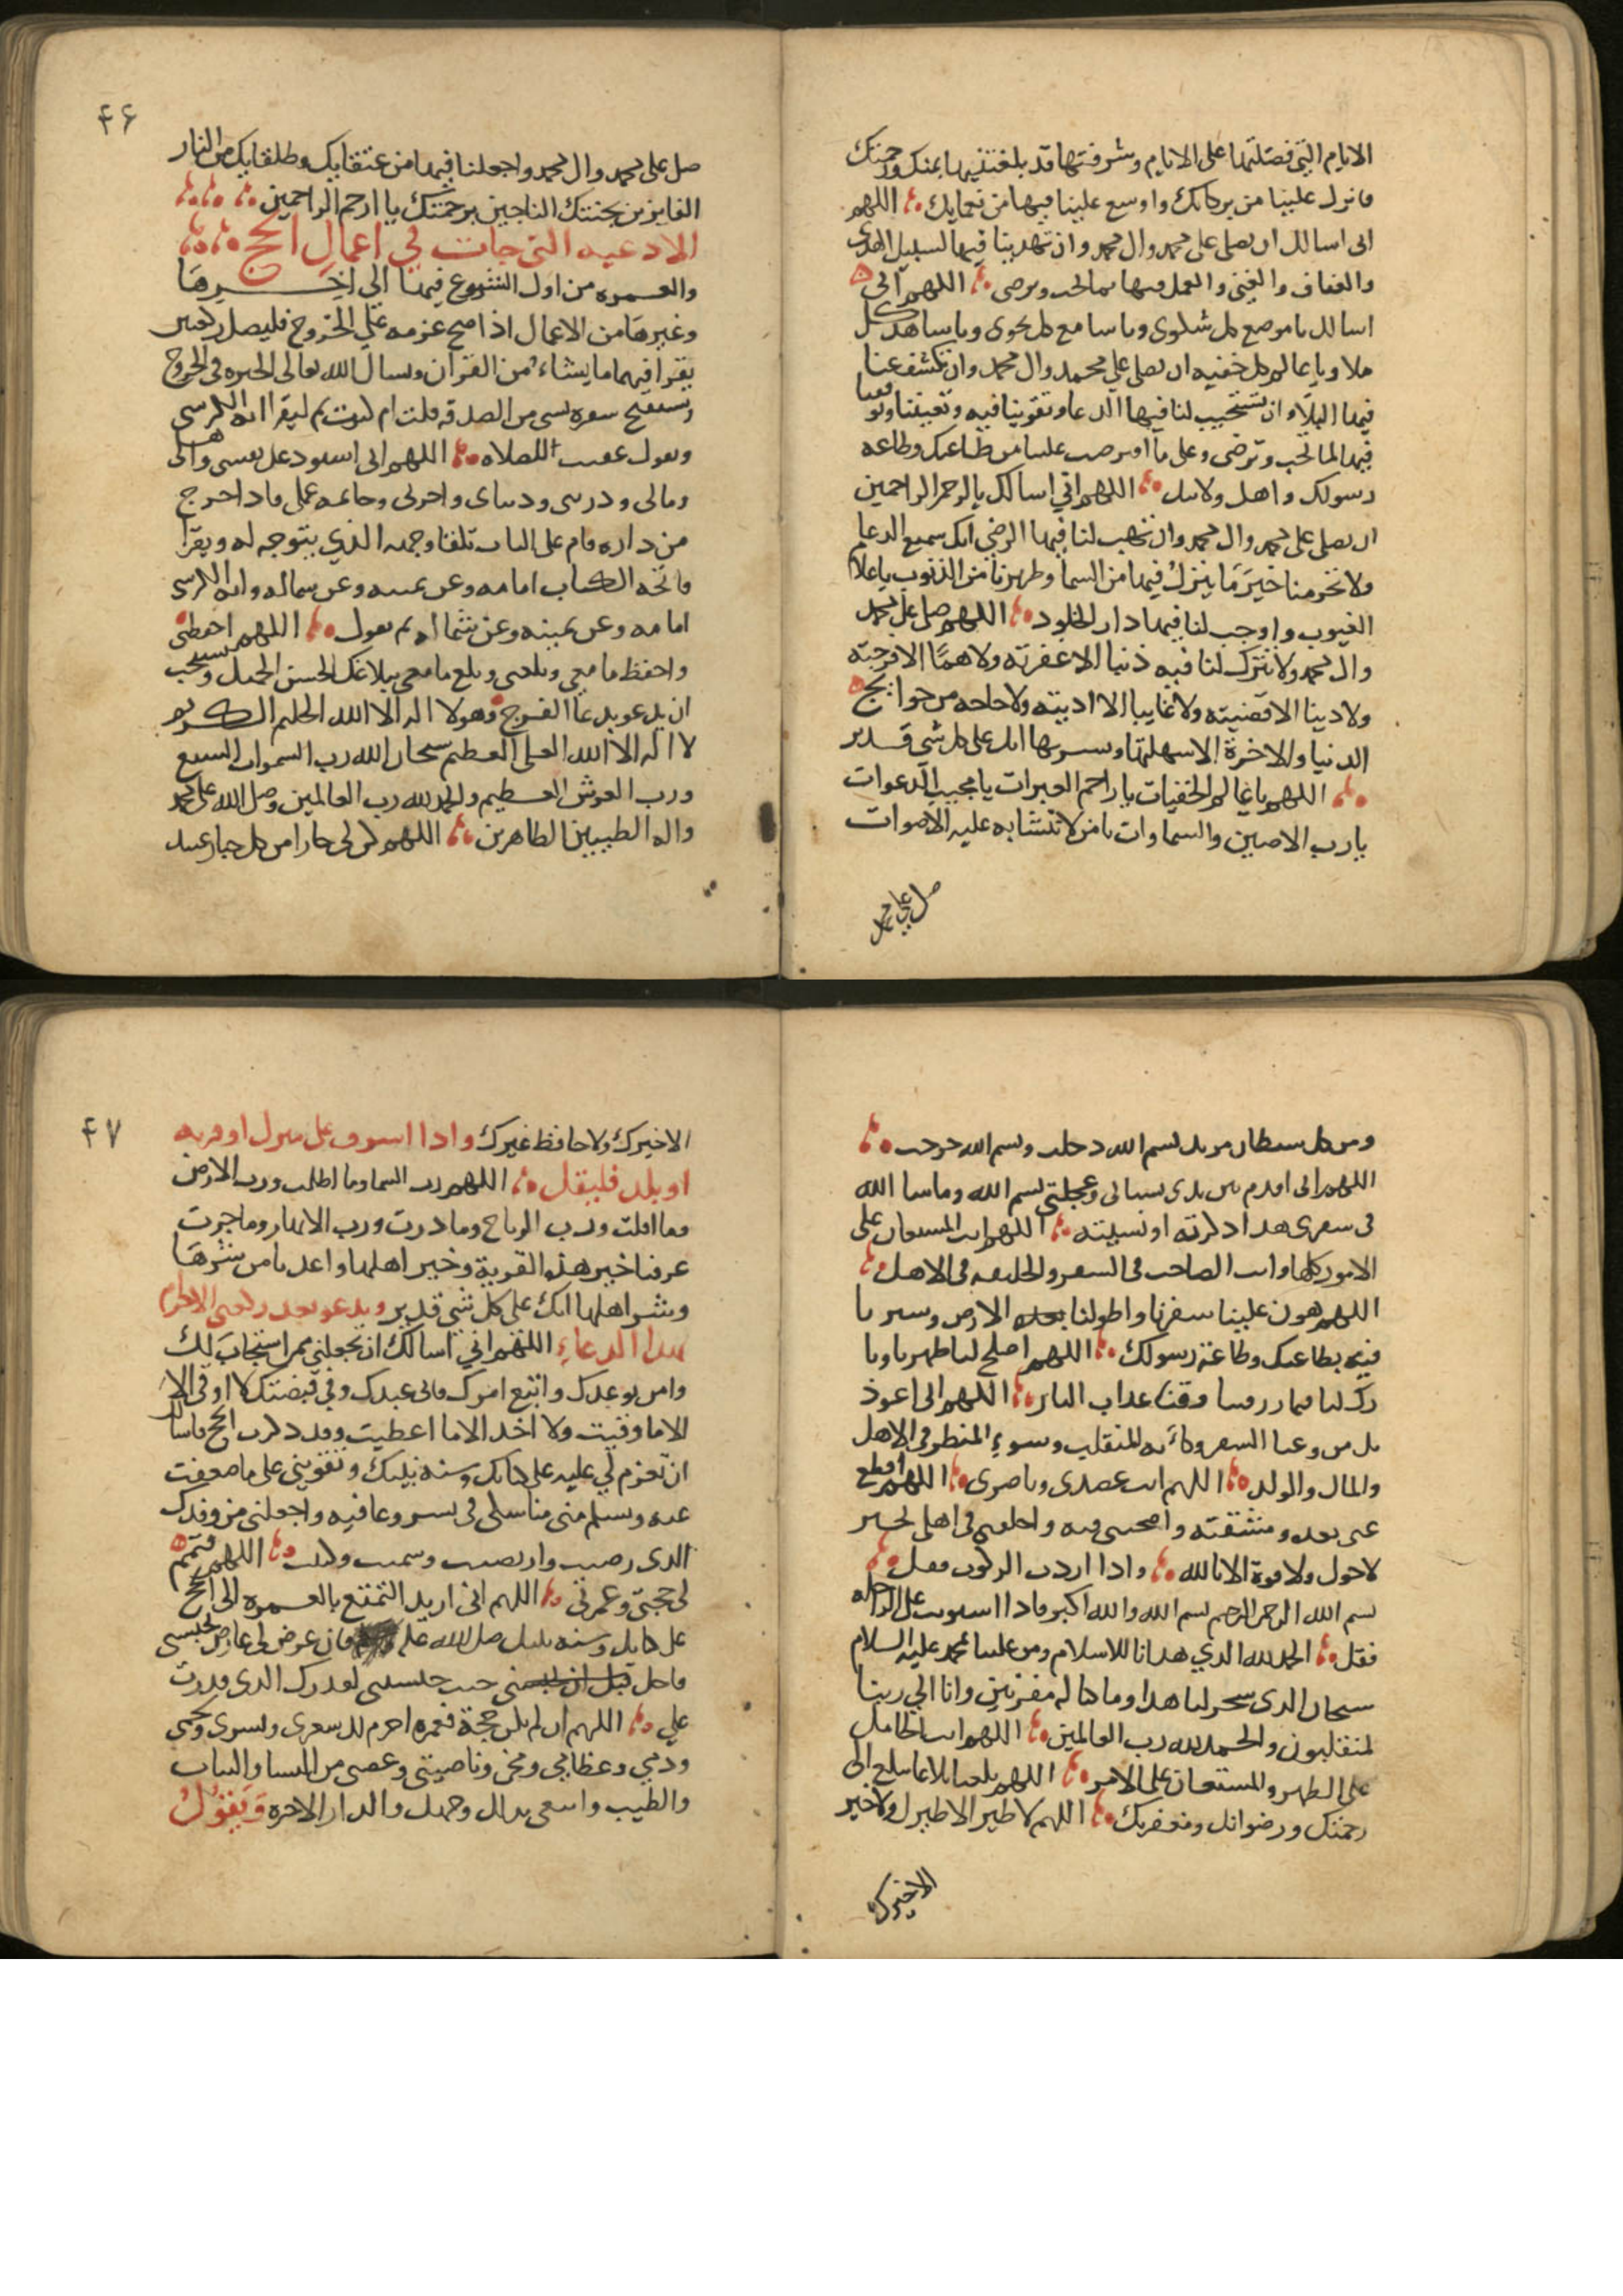 الايام التي فضلتها على الايام وشرفتها قد بلغتنيها بمنك ورحمتك
فانزل علينا من بركاتك واوسع علينا فيها من نعمايك اللهم
انى اسالك ان تصلى على محمد وال محمد وان تهدينا فيها لسبيل الهدى
والعفاف والغنى والعمل فيها بما تحب وترضى اللهم انى
اسالك يا موضع كل شكوى ويا سامع كل نجوى ويا شاهد كل
ملا ويا عالم كل خفيه ان تصلى على محمد وال محمد وان تكشف عنا
فيها البلاء وان تستجيب لنا فيها الدعا وتقوينا فيه وتعيننا وتوفقنا
فيها لما تحب وترضى وعلى ما افترضت علينا من طاعتك وطاعه
رسولك واهل ولايتك اللهم اني اسالك يا ارحم الراحمين
ان تصلى على محمد وال محمد وان تهب لنا فيها الرضى انك سميع الدعا
ولا تحرمنا خير ما ينزل فيها من السما وطهرنا من الذنوب يا علام
الغيوب واوجب لنا فيها دار الخلود اللهم صل على محمد
وال محمد ولا تترك لنا فيه ذنبا الا غفرته ولا هما الا فرجته
ولا دينا الا قضيته ولا غايبا الا اديته ولا حاجه من حوايج
الدنيا والاخرة الا سهلتها ويسرتها انك على كل شى قدير
اللهم يا عالم الخفيات يا راحم العبرات يا مجيب الدعوات
يا رب الارضين والسماوات يا من لا تتشابه عليه الاصوات
صل على محمد
۴۶
صل على محمد وال محمد واجعلنا فيها من عتقايك وطلقايك من النار
الفايزين بجنتك الناجين برحمتك يا ارحم الراحمين
الادعيه التى جات في اعمال الحج
والعمره من اول الشروع فيها الى اخرها
وغيرها من الاعمال اذا صح عزمه على الخروج فليصل ركعتين
يقرا فيهما ما يشاء من القران ويسال الله تعالى الخيره فى الخروج
ويستفتح سفره بشى من الصدقه قلت ام كثرت ثم ليقرا ايه الكرسى
ويقول عقيب الصلاه اللهم انى استودعك نفسى واهلى
ومالى وذريتى ودنياى واخرتى وخاتمه عملى فاذا خرج
من داره قام على الباب تلقا وجهه الذي يتوجه له ويقرا
فاتحه الكتاب امامه وعن يمينه وعن شماله وايه الكرسى
امامه وعن يمينه وعن شماله ثم يقول اللهم احفظنى
واحفظ ما معي وبلغنى وبلغ ما معي ببلاغك الحسن الجميل ويستحب
ان يدعو بدعا الفرج وهو لا اله الا الله الحليم الكريم
لا اله الا الله العلى العظيم سبحان الله رب السموات السبع
ورب العرش العظيم والحمد لله رب العالمين وصل الله على محمد
واله الطيبين الطاهرين اللهم كن لى جارا من كل جبار عنيد
ومن كل شيطان مريد بسم الله دخلت وبسم الله خرجت
اللهم انى اقدم بين يدى نسيانى وعجلتى بسم الله وما شا الله
فى سفرى هذا ذكرته او نسيته اللهم انت المستعان على
الامور كلها وانت الصاحب فى السفر والخليفه فى الاهل
اللهم هون علينا سفرنا واطو لنا الارض وسيرنا
فيها بطاعتك وطاعة رسولك اللهم اصلح لنا ظهرنا وبا
رك لنا فيما رزقتنا وقنا عذاب النار اللهم انى اعوذ
بك من وعثا السفر وكابه المنقلب وسوء المنظر فى الاهل
والمال والولد اللهم انت عضدى وناصرى اللهم اقطع
عنى بعده ومشقته واصحبنى فيه واخلفنى فى اهلى بخير
لا حول ولا قوة الا بالله واذا اردت الركوب فقل
بسم الله الرحمن الرحيم بسم الله والله اكبر فاذا استويت على الراحله
فقل الحمد لله الذي هدانا للاسلام ومن علينا بمحمد عليه السلام
سبحان الذى سخر لنا هذا وما كنا له مقرنين وانا الى ربنا
لمنقلبون والحمد لله رب العالمين اللهم انت الحامل
على الظهر والمستعان على الامر اللهم بلغنا بلاغا يبلغ الى
رحمتك ورضوانك ومغفرتك اللهم لا طير الا طيرك ولا خير
الا خيرك
۴۷
الا خيرك ولا حافظ غيرك واذا اشرف على منزل او قريه
او بلد فليقل اللهم رب السما وما اظلت ورب الارض
وما اقلت ورب الرياح وما درت ورب الانهار وما جرت
عرفنا خير هذه القرية وخير اهلها واعذنا من شرها
وشر اهلها انك على كل شي قدير ويدعو بعد ركعتى الاحرام
بهذا الدعاء اللهم اني اسالك ان تجعلني ممن استجاب لك
وامن بوعدك واتبع امرك فانى عبدك وفي قبضتك لا اوقى الا
الا ما وقيت ولا اخذ الا ما اعطيت وقد ذكرت الحج فاسالك
ان تعزم لي عليه على كتابك وسنه نبيك وتقوينى على ما ضعفت
عنه وتسلم منى مناسكى فى يسر وعافيه واجعلنى من وفدك
الذى رضيت وارتضيت وسميت وكتبت اللهم فتمم
لى حجتى وعمرتى اللهم انى اريد التمتع بالعمره الى الحج
على كتابك وسنه نبيك صلى الله عليه فان عرض لى عارض يحبسنى
فاحل حيث حبستنى لقدرك الذى قدرت
على اللهم ان لم تكن حجة فعمره احرم لك شعرى وبشرى ولحمى
ودمي وعظامي ومخى وناصيتى وعصبى من النسا والثياب
والطيب وابتغى بذلك وجهك والدار الاخره ويقول